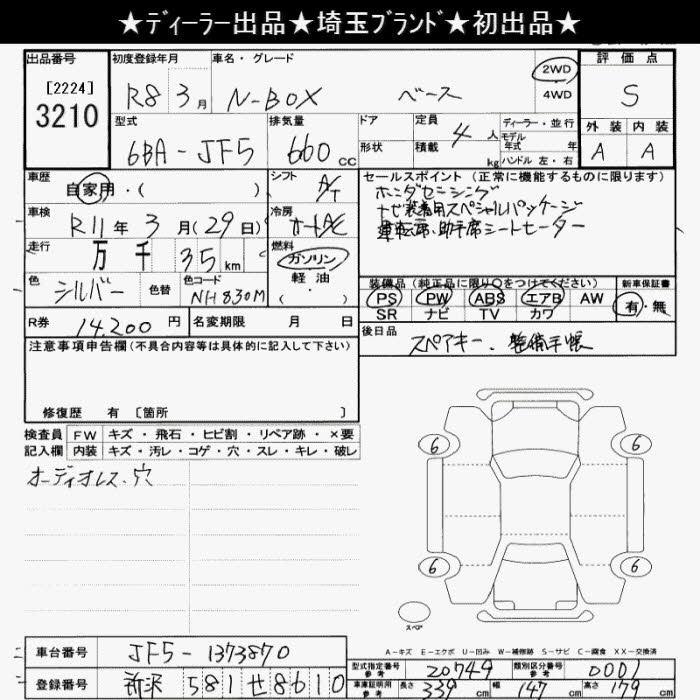 ★ディーラー出品★埼玉ブランド★初出品★
出品番号
[2224]
3210
初度登録年月
R8 3月
車名・グレード
N-BOX ベース
2WD
4WD
評価点
S
外装 内装
A A
型式
6BA-JF5
排気量
660 cc
ドア
形状
定員
4人
積載
kg
ディーラー・並行
モデル
年式 年
ハンドル 左・右
車歴
自家用・( )
シフト
A/T
車検
R11年 3月(29日)
冷房
オートA/C
走行
万 千 35 km
燃料
ガソリン
軽油
( )
色
シルバー
色替
色コード
NH830M
R券
14,200円
名変期限 月 日
セールスポイント(正常に機能するものに限ります)
ホンダセンシング
ナビ装着用スペシャルパッケージ
運転席、助手席シートヒーター
装備品(純正品に限り〇をつけてください)
PS PW ABS エアB AW
SR ナビ TV カワ
新車保証書
有・無
後日品
スペアキー、整備手帳
注意事項申告欄(不具合内容等は具体的に記入して下さい)
修復歴 有 〔箇所 〕
検査員
記入欄
FW キズ・飛石・ヒビ割・リペア跡・×要
内装 キズ・汚レ・コゲ・穴・スレ・キレ・破レ
オーディオレス穴
6 6
6 6
スペア
A-キズ E-エクボ U-凹み W-補修跡 S-サビ C-腐食 XX-交換済
車台番号
JF5-1373870
登録番号
所沢 581 せ 8610
型式指定番号
参考
20749
類別区分番号
参考
0001
車庫証明用
参考
長さ 339 cm 幅 147 cm 高さ 179 cm